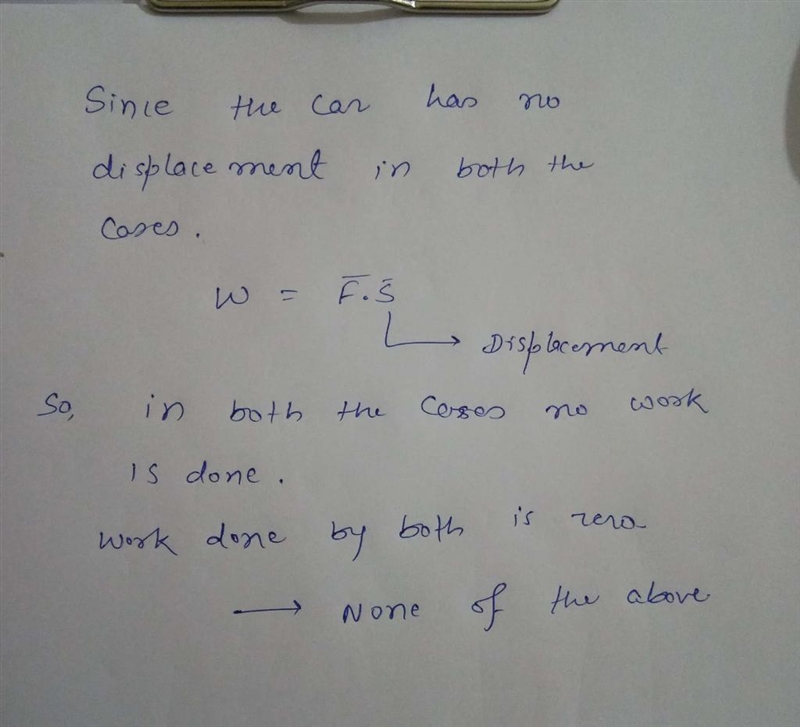 Since the car has no
displacement in both the
cases.
W = F̅.S̅
Displacement
So, in both the cases no work
is done.
Work done by both is zero
→ None of the above